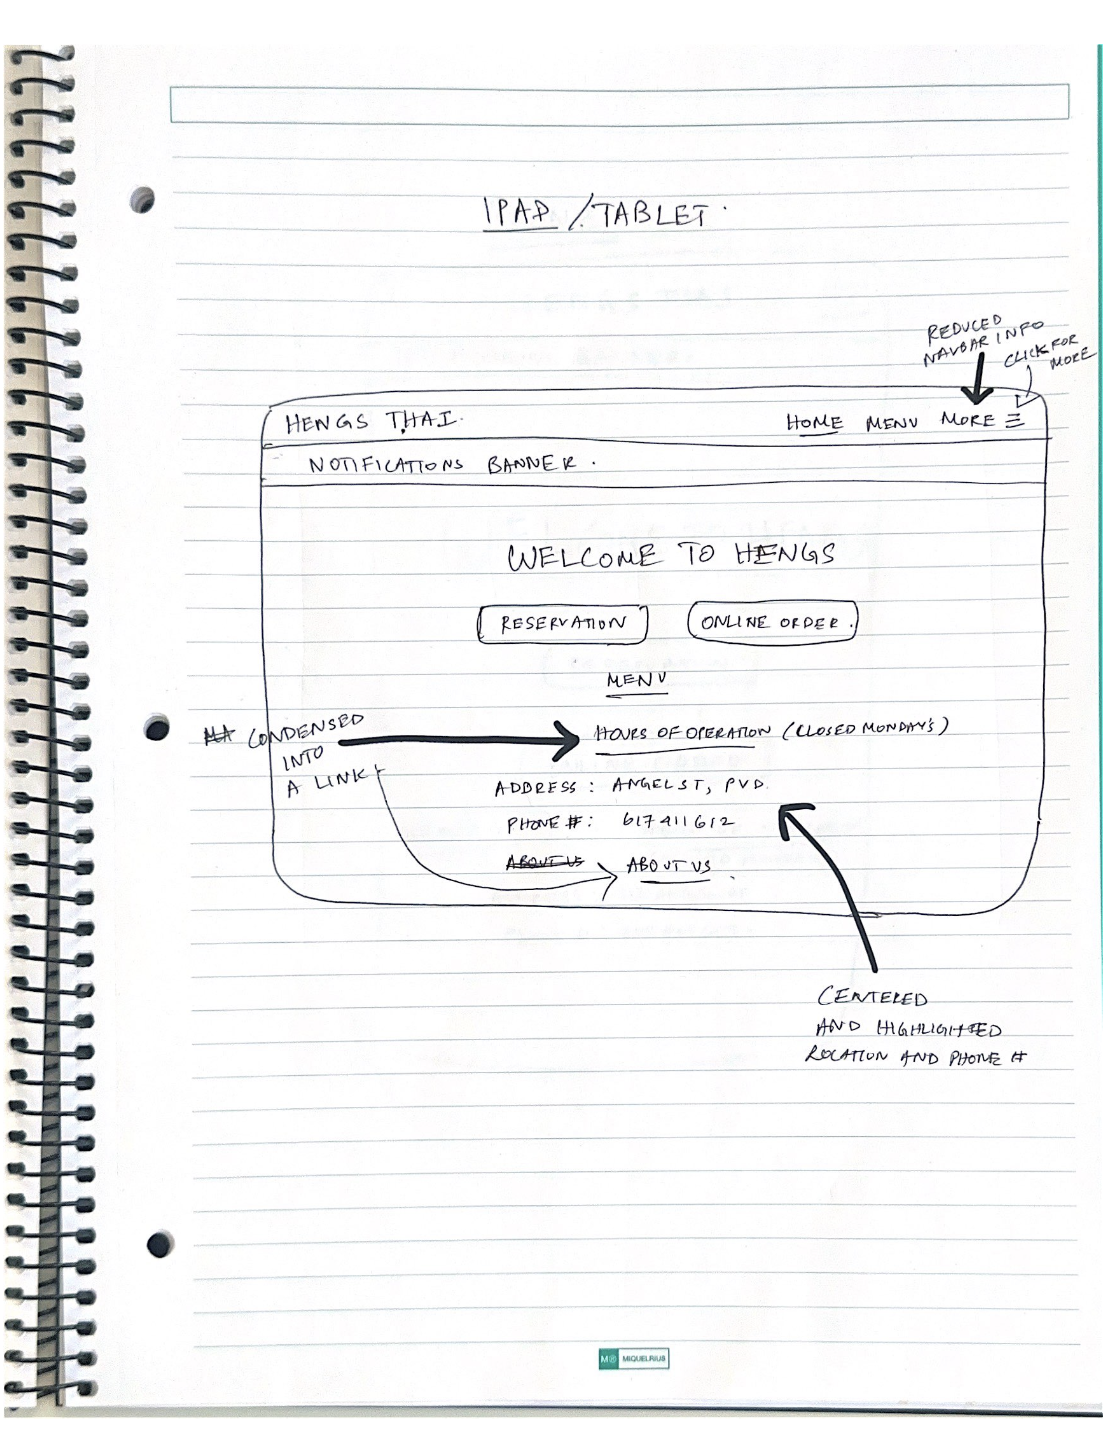 IPAD / TABLET.
REDUCED
NAVBAR INFO
CLICK FOR
MORE
HENGS THAI.
HOME MENU MORE
NOTIFICATIONS BANNER.
WELCOME TO HENGS
RESERVATION
ONLINE ORDER.
MENU
CONDENSED
INTO
A LINK
HOURS OF OPERATION (CLOSED MONDAY'S)
ADDRESS: ANGELST, PVD.
PHONE #: 617 411 612
ABOUT US ABOUT US.
CENTERED
AND HIGHLIGHTED
LOCATION AND PHONE #
MR MIQUELRIUS